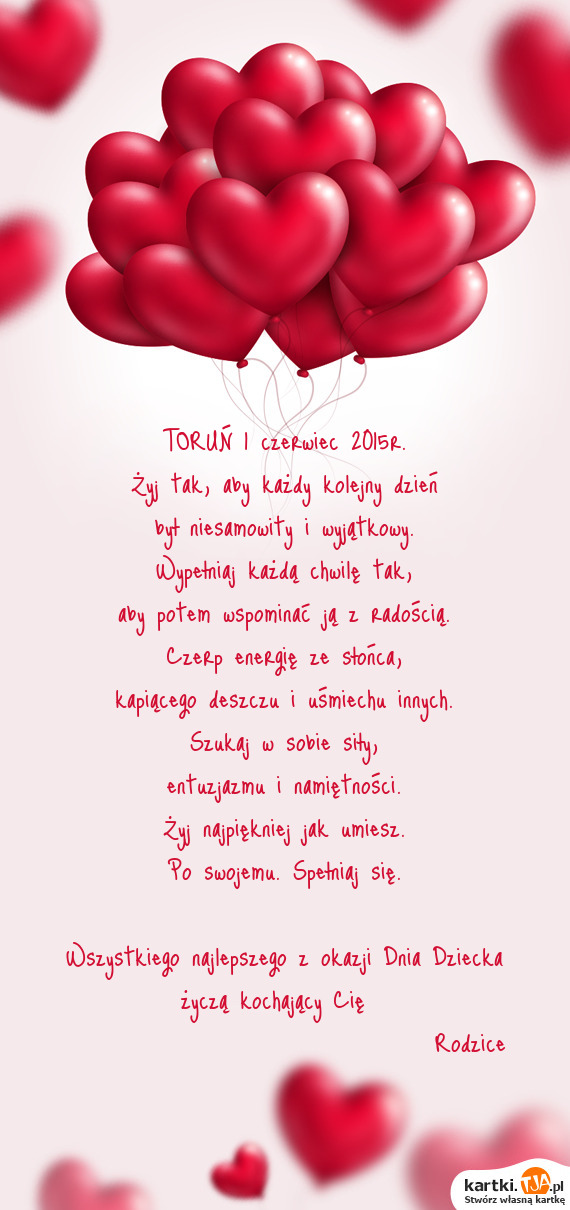 TORUŃ 1 czerwiec 2015r.
Żyj tak, aby każdy kolejny dzień
był niesamowity i wyjątkowy.
Wypełniaj każdą chwilę tak,
aby potem wspominać ją z radością.
Czerp energię ze słońca,
kapiącego deszczu i uśmiechu innych.
Szukaj w sobie siły,
entuzjazmu i namiętności.
Żyj najpiękniej jak umiesz.
Po swojemu. Spełniaj się.
Wszystkiego najlepszego z okazji Dnia Dziecka
życzą kochający Cię
Rodzice
kartki.TJA.pl
Stwórz własną kartkę